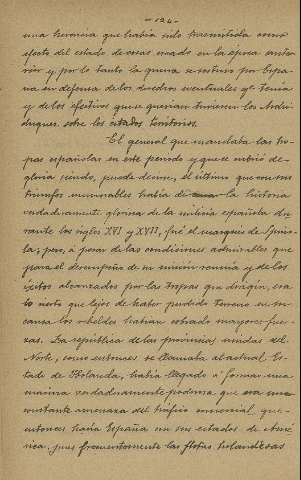 - 124 -
una herencia que había sido trasmitida como
efecto del estado de cosas creado en la época ante-
rior y por lo tanto la guerra se sostuvo por Espa-
ña en defensa de los derechos eventuales qe. tenía
y de los efectivos que se querían tuviesen los Archi-
duques sobre los estados territorios.
El general que mandaba las tro-
pas españolas en este período y que se cubrió de
gloria siendo, puede decirse, el último que con sus
triunfos innumerables había de la historia
verdaderamente gloriosa de la milicia española du-
rante los siglos XVI y XVII, fué el marqués de Spíno-
la; pero, á pesar de las condiciones admirables que
para el desempeño de su misión reunía y de los
éxitos alcanzados por las tropas que dirigía, era
lo cierto que lejos de haber perdido terreno en su
causa los rebeldes habían cobrado mayores fuer-
zas. La república de las provincias unidas del
Norte, como entonces se llamaba al actual Es-
tado de Holanda, había llegado á formar una
marina verdaderamente poderosa que era una
constante amenaza del tráfico comercial, que
entonces hacía España en sus estados de Amé-
rica, pues frecuentemente las flotas holandesas